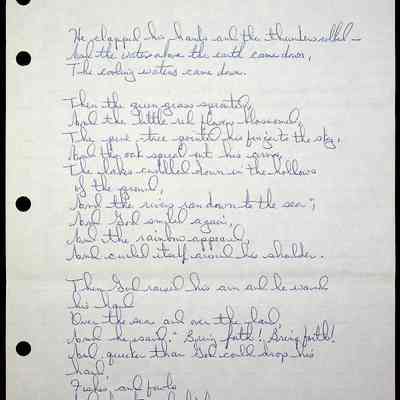 He clapped his hands and the thunders rolled —
And the waters above the earth came down,
The cooling waters came down.
Then the green grass sprouted,
And the little red flowers blossomed,
The pine tree pointed his finger to the sky,
And the oak spread out his arms,
The lakes cuddled down in the hollows
of the ground,
And the rivers ran down to the sea;
And God smiled again,
And the rainbow appeared,
And curled itself around his shoulder.
Then God raised his arm and he waved
his hand
Over the sea and over the land,
And he said, "Bring forth! Bring forth!
And quicker than God could drop his
hand
Fishes and fowls